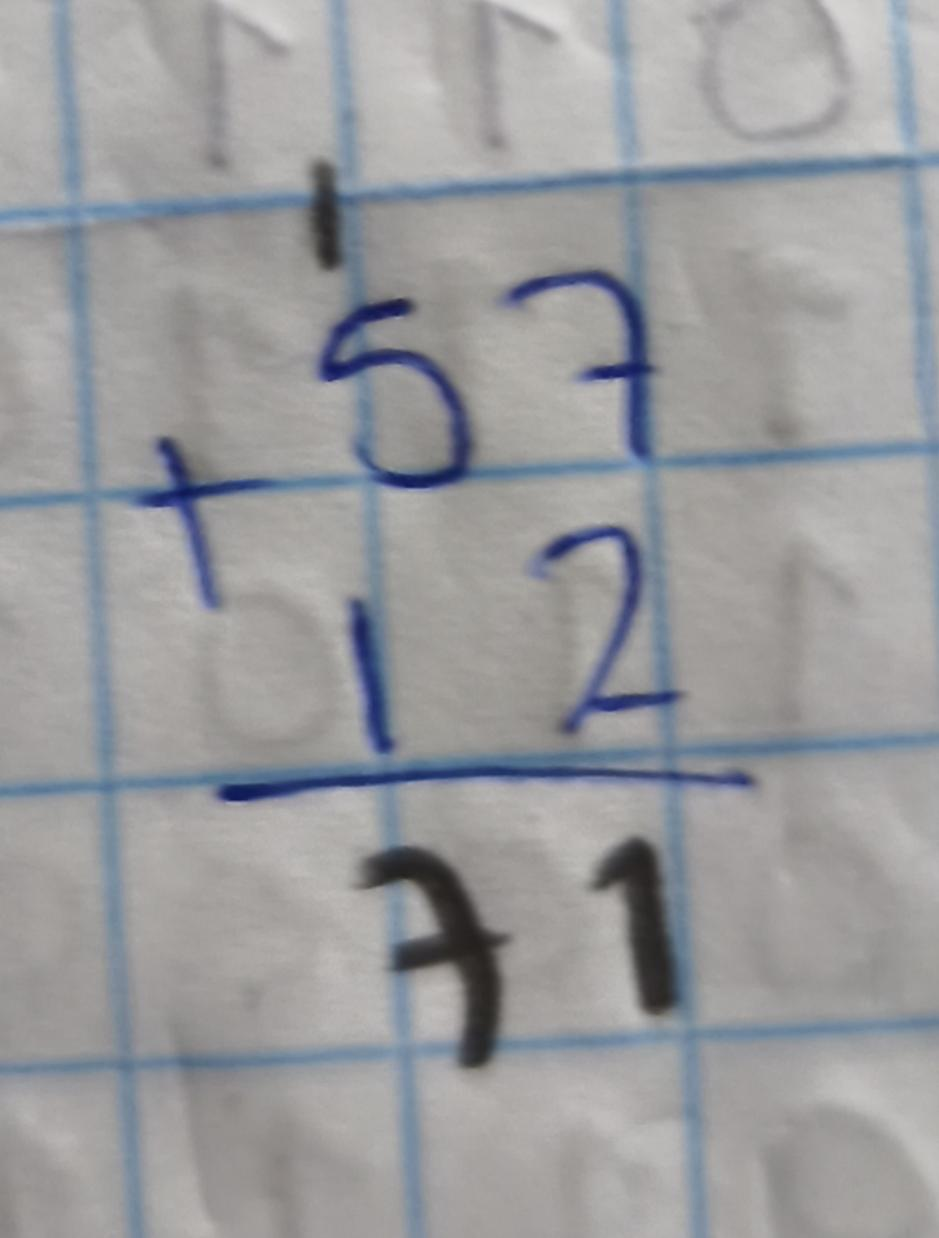 1
57
+
12
71